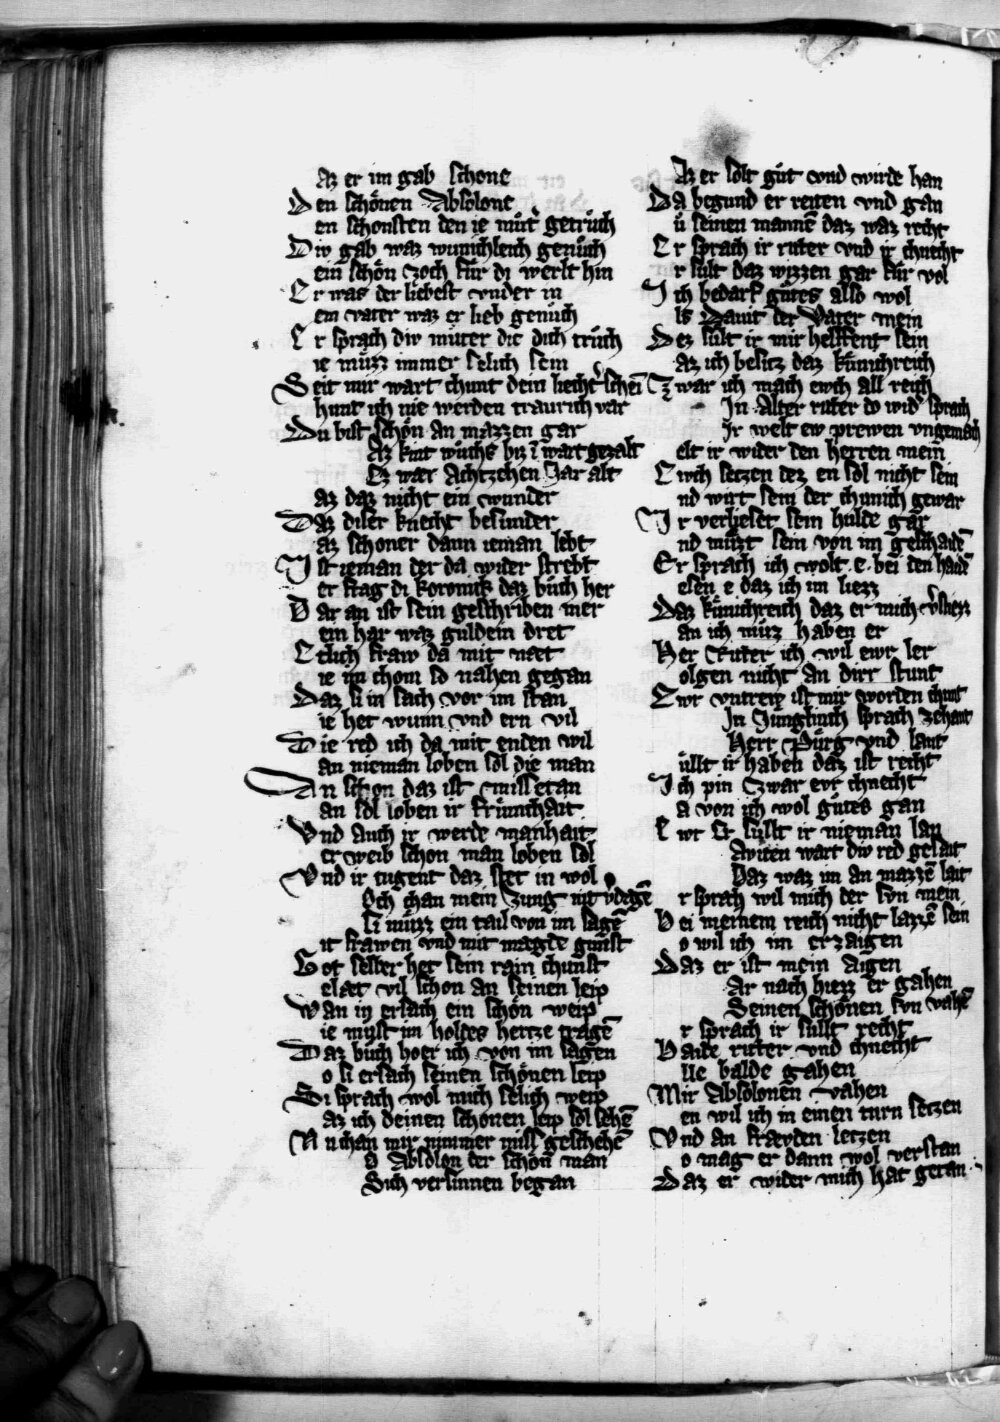 Az er im gab schone
Den schönen Absolone
en schonsten den ie mut͛ getrůch
Div gab waz wunichleich genůch
ein schön zoch für di werlt hin
Er was der liebest vnder in
em vater waz er lieb genůch
Er sprach div můter die dich trůch
ie můzz immer selich sein
Seit mir wart chunt dein liecht͛ schein̄
hunt ich nie werden traurich var
Du bist schön an mazzen gar
Az kint wůchs biz ī wart gezalt
Ez wær Achtzehen Jar alt
az daz nicht ein wunder
Daz diser knecht besunder
az schoner dann ieman lebt
Ist ieman der da wider strebt
er frag di koronik daz bůch her
Dar an ist sein geschriben mer
ein har waz guldein dret
Etlich fraw da mit næt
ie im chom so nahen gegan
Daz si in sach vor im stan
ie het wunn vnd ern vil
Die red ich da mit enden wil
an nieman loben sol die man
An schon daz ist missetan
an sol loben ir frümchait
Vnd auch ir werde manhait
er weib schon man loben sol
Vnd ir tugent daz stet in wol
Och chan mein zung nit v͛dagē
Si můzz ein tail von im sagē
it frawen vnd mit magde gunst
Got selber het sein rain chunst
elæt vil schon an seinen leip
Wan in ersach ein schön weip
ie must im holdes hertze tragē
Daz bůch hoer ich von im sagen
o si ersach seinen schönen leip
Si sprach wol mich selich weip
az ich deinen schonen leip sol sehē
Nu chan mir nimmer miss geschehē
O Absolon der schön man
Sich versinnen began
Az er solt gůt vnd wirde han
Da begund er reiten vnd gan
ů seinen mannē daz waz recht
Er sprach ir ritter vnd ir chnecht
r sült daz wizzen gar für vol
Ich bedarf gůtes also wol
ls Dauit der Vater mein
Dez sült ir mir helffent sein
az ich besitz daz künichreich
Zwar ich mach ewch all reich
In Alter ritter do wid͛ sprach
Ir welt ew prewen vngemach
elt ir wider den herren mein
Ewch setzen dez en sol nicht sein
nd wirt sein der chunich gewar
Ir verlieset sein hulde gar
nd můzt sein von im geschaidē
Er sprach ich wolt e bei den haidē
esen e daz ich im liezz
Daz künichreich daz er mich v͛stiezz
an ich můz haben er
Her Ritter ich wil ewr ler
olgen nicht an dirr stunt
Ewr vntrew ist mir worden chunt
In Junglinch sprach zehant
Herr Pürg vnd lant
üllt ir haben daz ist recht
Ich pin Zwar ewr chnecht
a von ich wol gůtes gan
Ewr Er süllt ir nieman lan
Auiten wart div red gesait
Daz waz im an mazzē lait
r sprach wil mich der svn mein
Bei meinem reich nicht lazzē sein
o wil ich im erzaigen
Daz er ist mein aigen
Ar nach hiezz er gahen
Seinen schönen svn vahē
r sprach ir süllt recht
Baide ritter vnd chnecht
lle balde gahen
Mir Absolonen vahen
en wil ich in einen turn setzen
Vnd an fraevden letzen
o mag er dann wol verstan
Daz er wider mich hat getan